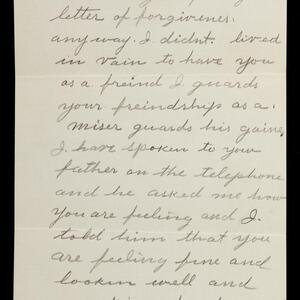 letter of forgivenes.
anyway. I didnt. lived
in vain to have you
as a freind I guards
your freindship as a.
miser guards his gains,
I have spoken to your
father on the telephone
and he asked me how
you are feeling and I.
told him that you
are feeling fine and
lookin well and